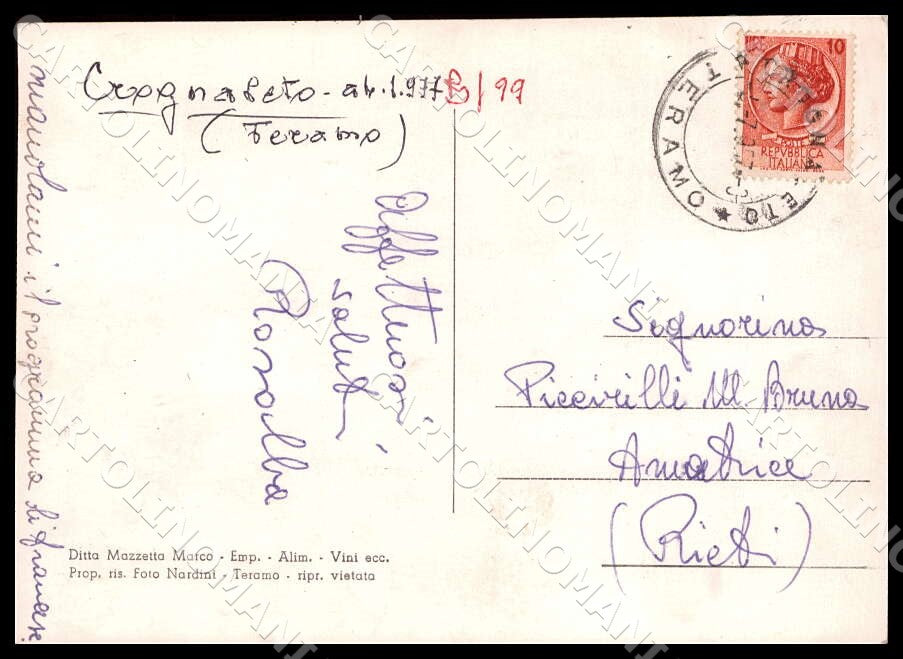 Crognaleto - ab. 1.977 B/99
(Teramo)
Affettuosi
saluti
Rosalba
mandami il programma di francese
10
POSTE
REPVBBLICA
ITALIANA
TERAMO
Signorina
Piccirilli M Bruna
Amatrice
(Rieti)
Ditta Mazzetta Marco - Emp. - Alim. - Vini ecc.
Prop. ris. Foto Nardini - Teramo - ripr. vietata
CARTOLINOMANIA